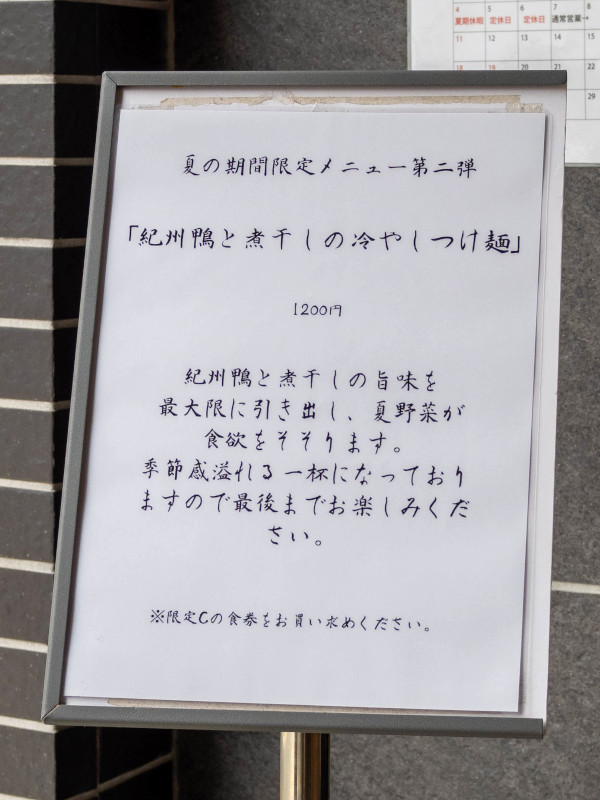 4 5 6 7 8
夏期休暇 定休日 定休日 通常営業→
11 12 13 14 15
18 19 20 21
29
夏の期間限定メニュー第二弾
「紀州鴨と煮干しの冷やしつけ麺」
1200円
紀州鴨と煮干しの旨味を
最大限に引き出し、夏野菜が
食欲をそそります。
季節感溢れる一杯になっており
ますので最後までお楽しみくだ
さい。
※限定Cの食券をお買い求めください。